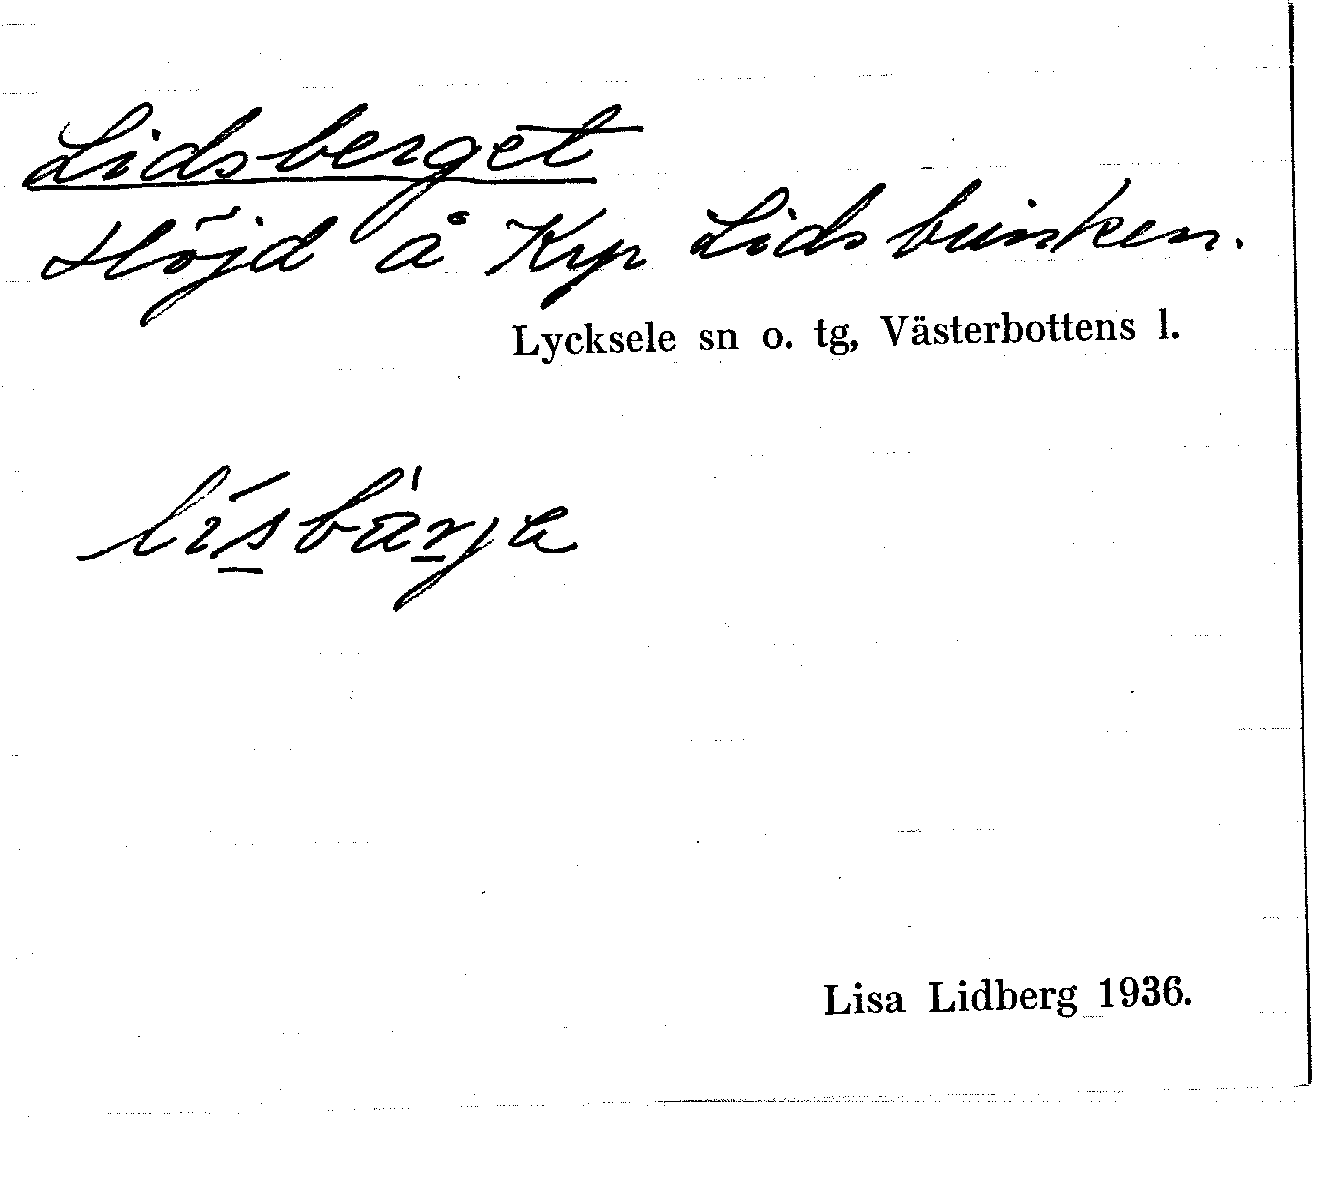 Lidsberget
Höjd å Krp Lidsbunken.
Lycksele sn o. tg, Västerbottens l.
Lisa Lidberg 1936.